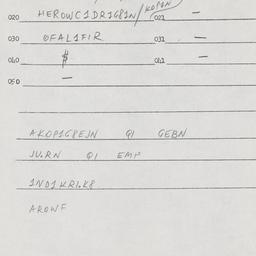 020 HEROWC1DR1G81N/KOP1N 021 —
030 OFAL1F1R 031 —
040 $ 041 —
050 —
AKOP1G8EJN Q1 GEBN
JU.RN Q1 EMP
1ND1KR1.K8
AROWF